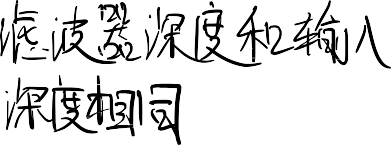 滤波器深度和输入
深度相同